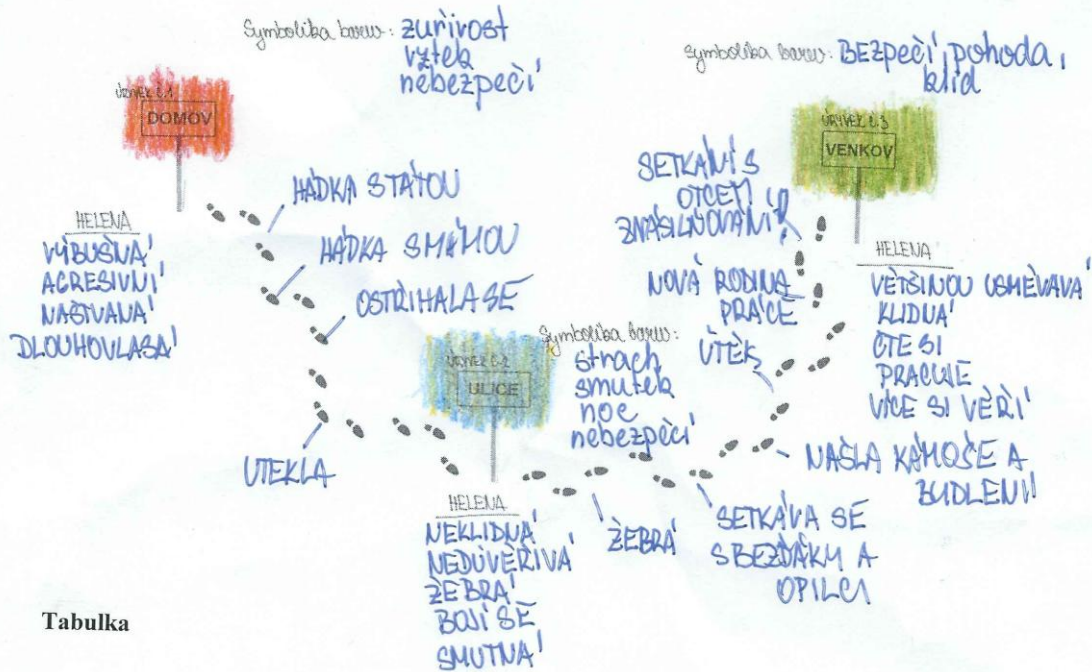 Symbolika barev: zuřivost
vztek
nebezpečí
Symbolika barev: BEZPEČÍ, pohoda,
klid
ÚRYVEK Č.1
DOMOV
HELENA
VÝBUŠNÁ
AGRESIVNÍ
NAŠTVANÁ
DLOUHOVLASÁ
HÁDKA S TÁTOU
HÁDKA S MÁMOU
OSTŘIHALA SE
UTEKLA
ÚRYVEK Č.2
ULICE
Symbolika barev:
strach
smutek
noc
nebezpečí
HELENA
NEKLIDNÁ
NEDŮVĚŘIVÁ
ŽEBRÁ
BOJÍ SE
SMUTNÁ
ŽEBRÁ
SETKÁVÁ SE
S BEZĎÁKY A
OPILCI
NAŠLA KÁMOŠE A
BYDLENÍ
ÚTĚK
NOVÁ RODINA
PRÁCE
SETKÁNÍ S
OTCEM
ZNÁSILŇOVÁNÍ
ÚRYVEK Č.3
VENKOV
HELENA
VĚTŠINOU USMĚVAVÁ
KLIDNÁ
ČTE SI
PRACUJE
VÍCE SI VĚŘÍ
Tabulka